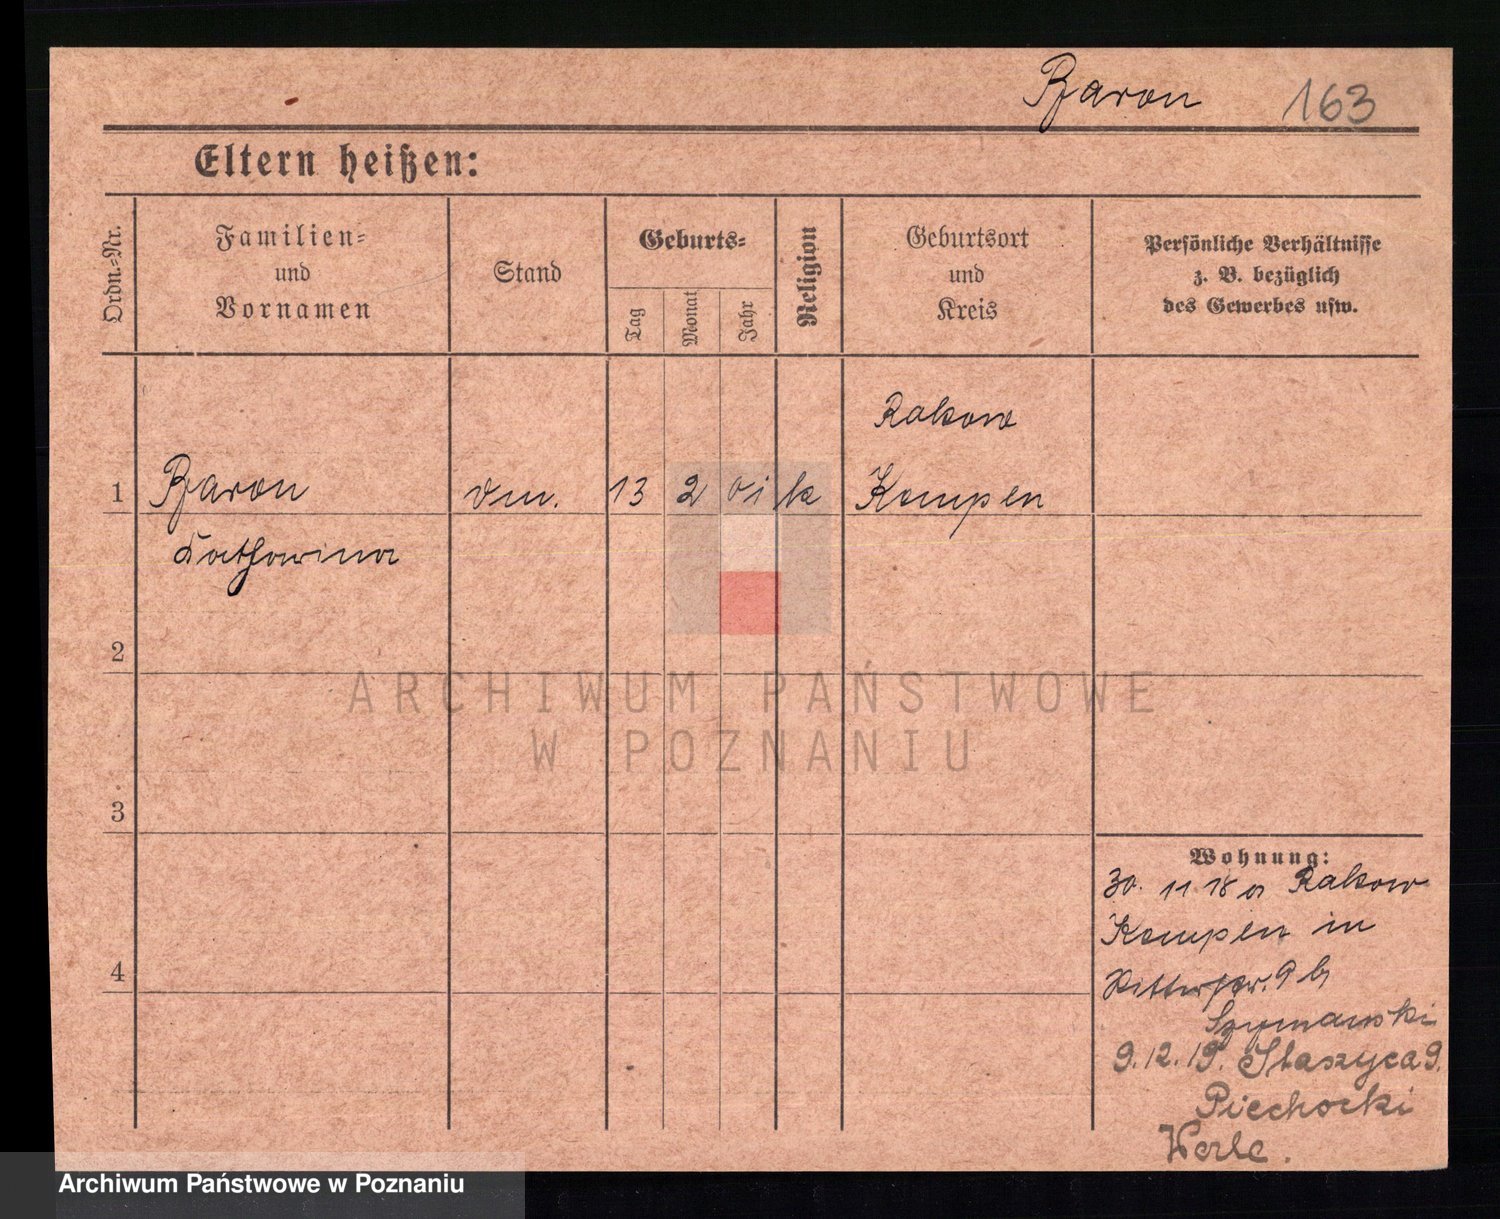 Baron 163
Eltern heißen:
Ordn.=Nr.
Familien=
und
Vornamen
Stand
Geburts=
Tag
Monat
Jahr
Religion
Geburtsort
und
Kreis
Persönliche Verhältnisse
z. B. bezüglich
des Gewerbes usw.
Rakow
1 Baron 13 2 01 k Kempen
Katharina
2
3
4
Wohnung:
30. 11 18 a Rakow
Kempen in
Ritterstr. 9 b
Szymanski
9.12.19. Staszyca 9.
Piechocki
ARCHIWUM PAŃSTWOWE
W POZNANIU
Archiwum Państwowe w Poznaniu